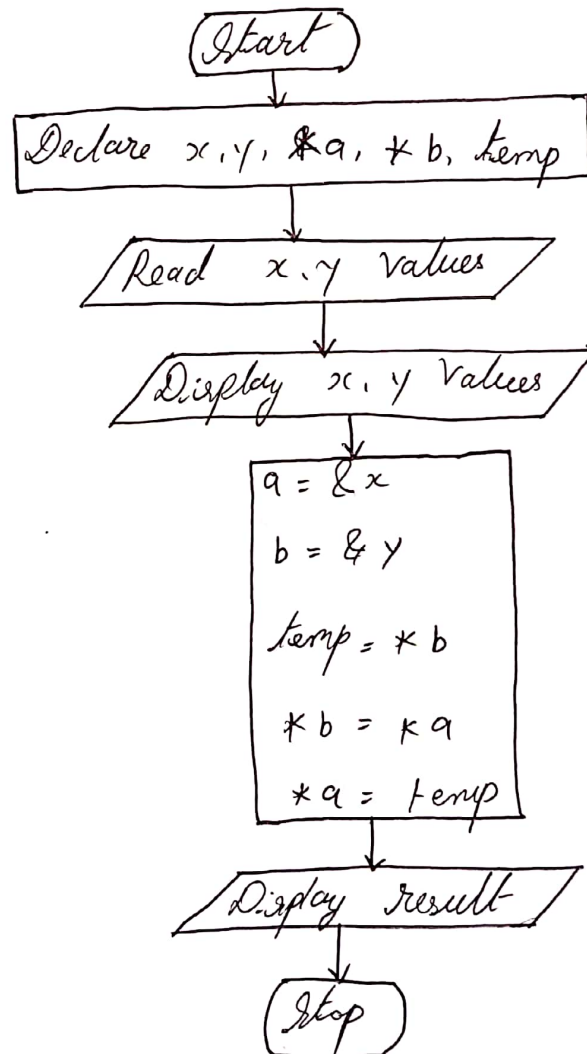 Start
Declare x, y, *a, *b, temp
Read x, y Values
Display x, y Values
a = &x
b = &y
temp = *b
*b = *a
*a = temp
Display result
Stop